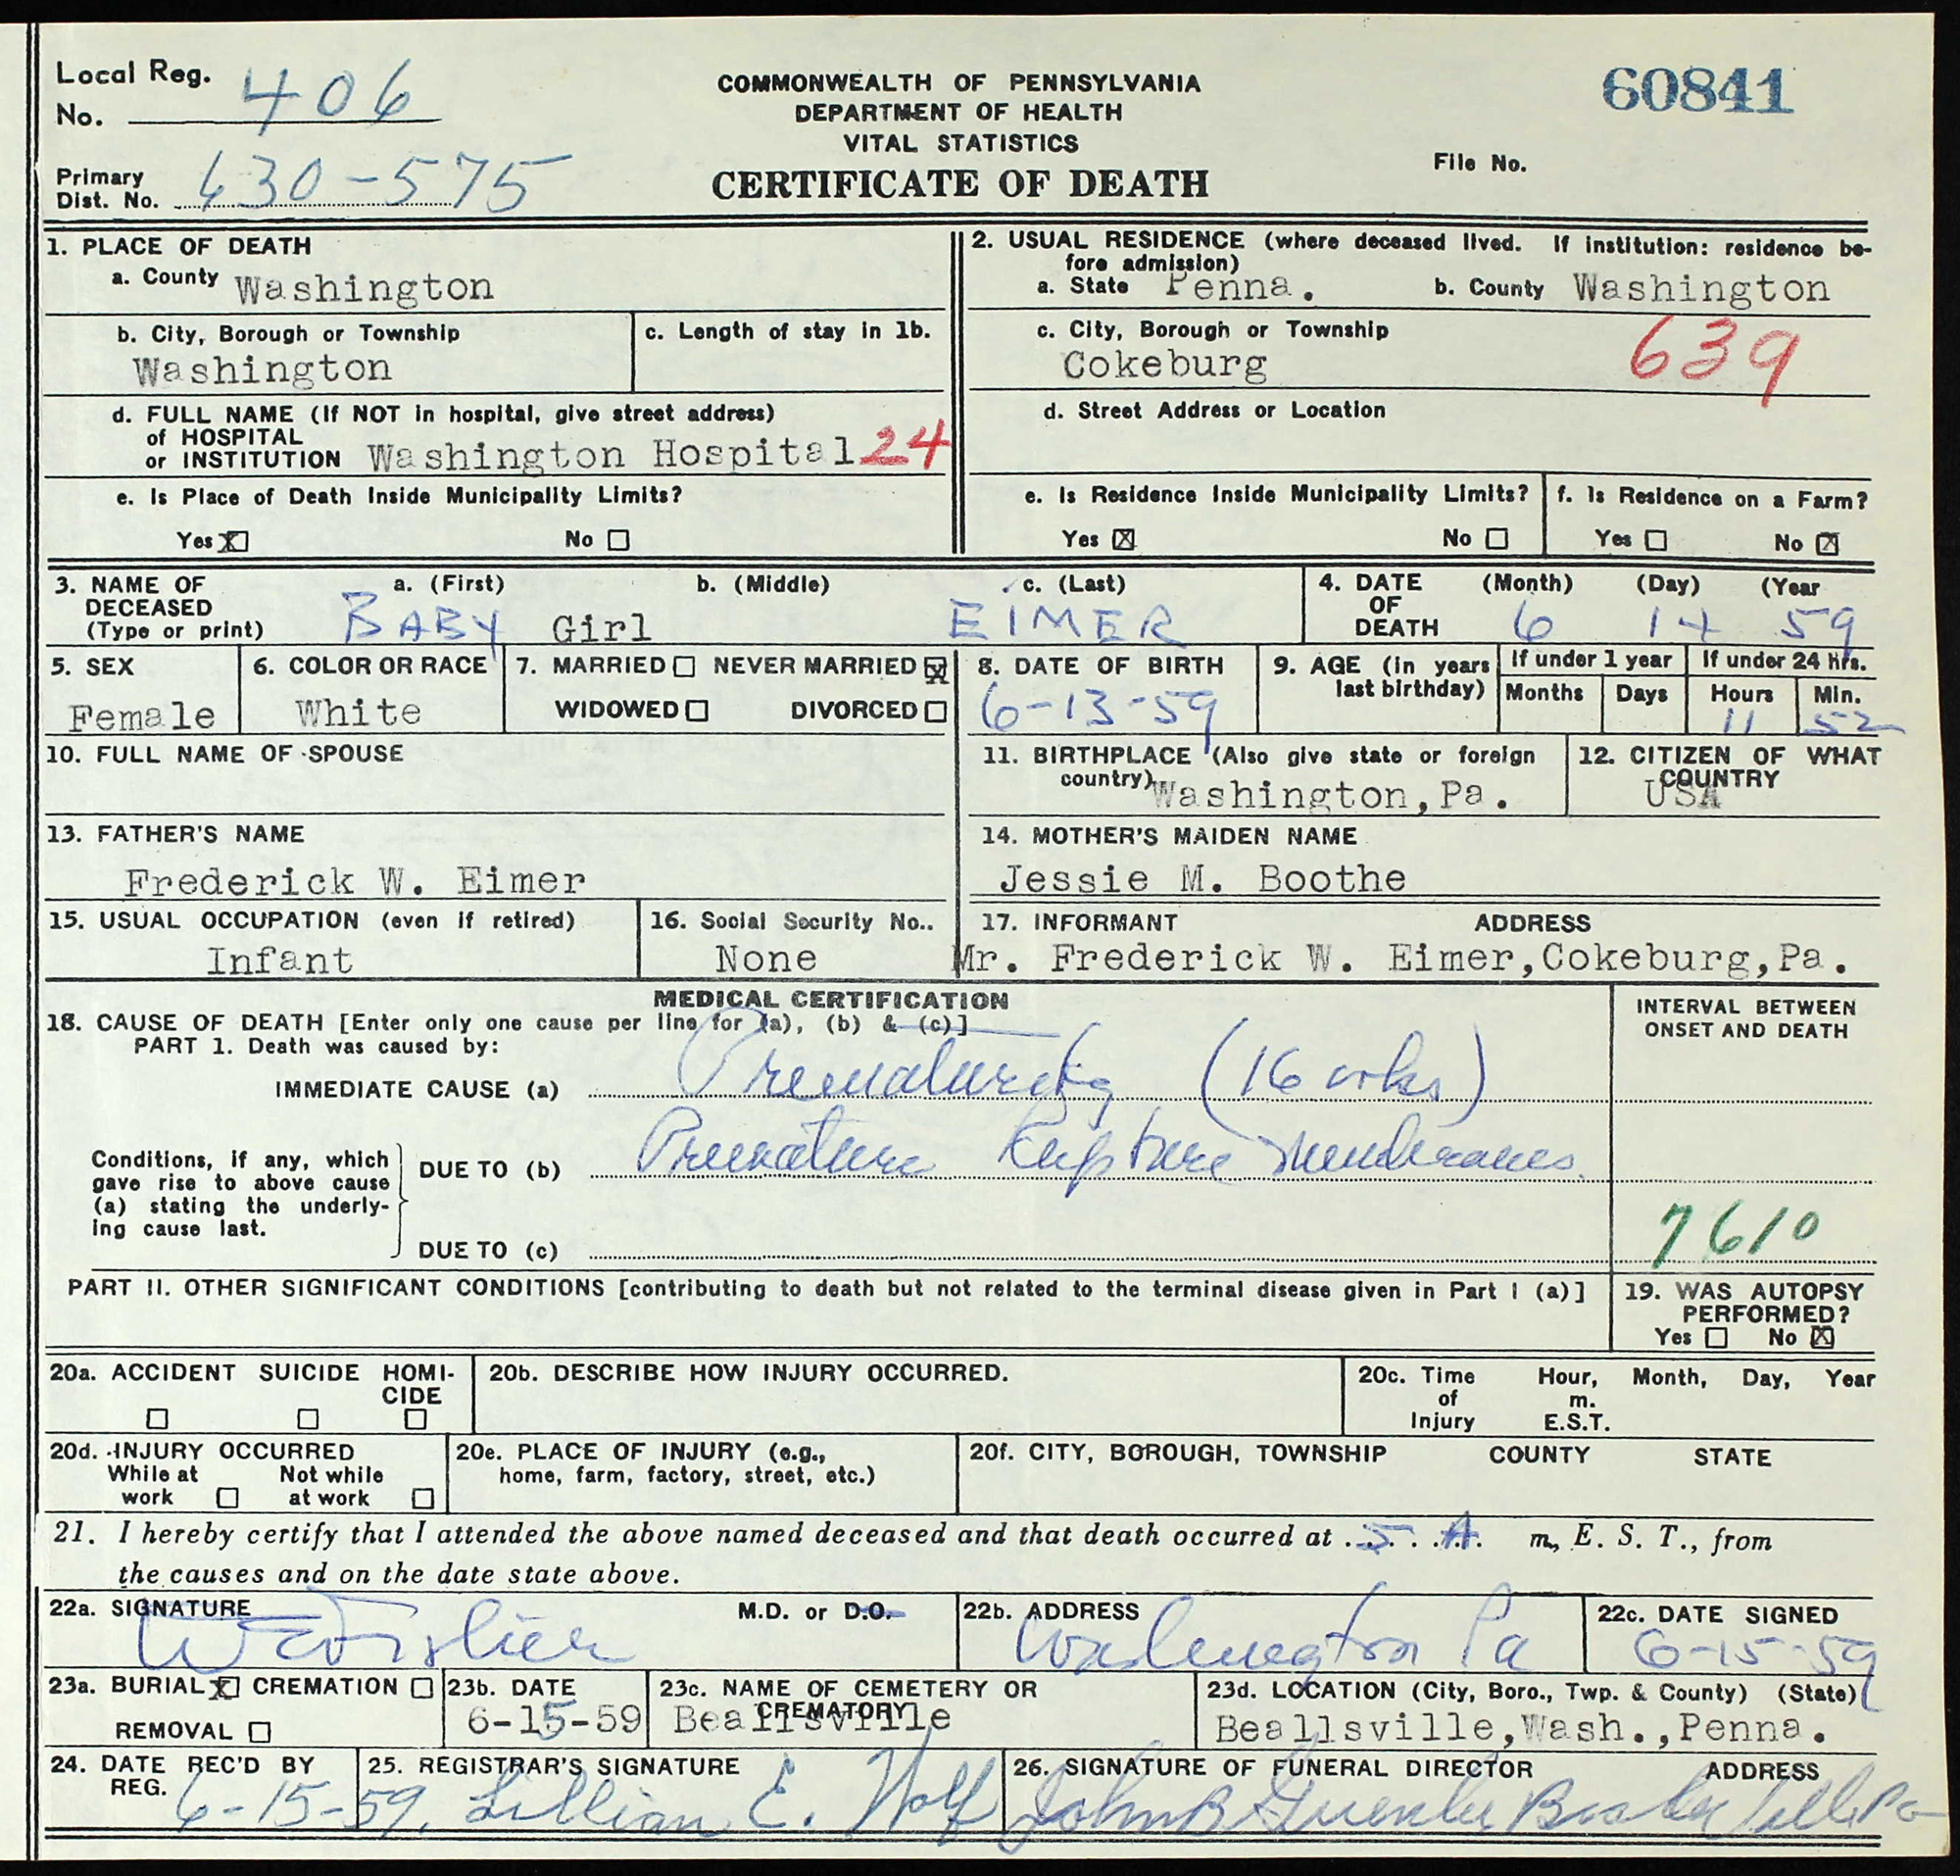 Local Reg. No. 406
60841
COMMONWEALTH OF PENNSYLVANIA
DEPARTMENT OF HEALTH
VITAL STATISTICS
CERTIFICATE OF DEATH
File No.
Primary Dist. No. 630-575
1. PLACE OF DEATH
a. County Washington
b. City, Borough or Township
Washington
c. Length of stay in 1b.
d. FULL NAME (If NOT in hospital, give street address)
of HOSPITAL
or INSTITUTION Washington Hospital 24
e. Is Place of Death Inside Municipality Limits?
Yes X No
2. USUAL RESIDENCE (where deceased lived. If institution: residence be-
fore admission)
a. State Penna. b. County Washington
c. City, Borough or Township
Cokeburg 639
d. Street Address or Location
e. Is Residence Inside Municipality Limits?
Yes X No
f. Is Residence on a Farm?
Yes No X
3. NAME OF
DECEASED
(Type or print)
a. (First) b. (Middle) c. (Last)
BABY Girl EIMER
4. DATE
OF
DEATH
(Month) (Day) (Year
6 14 59
5. SEX
Female
6. COLOR OR RACE
White
7. MARRIED NEVER MARRIED X
WIDOWED DIVORCED
8. DATE OF BIRTH
6-13-59
9. AGE (in years
last birthday)
If under 1 year
Months Days
If under 24 hrs.
Hours Min.
11 52
10. FULL NAME OF SPOUSE
11. BIRTHPLACE (Also give state or foreign
country)
Washington,Pa.
12. CITIZEN OF WHAT
COUNTRY
USA
13. FATHER'S NAME
Frederick W. Eimer
14. MOTHER'S MAIDEN NAME
Jessie M. Boothe
15. USUAL OCCUPATION (even if retired)
Infant
16. Social Security No..
None
17. INFORMANT ADDRESS
Mr. Frederick W. Eimer,Cokeburg,Pa.
MEDICAL CERTIFICATION
18. CAUSE OF DEATH [Enter only one cause per line for (a), (b) & (c)]
PART 1. Death was caused by:
IMMEDIATE CAUSE (a) Prematurity (16 wks)
INTERVAL BETWEEN
ONSET AND DEATH
Conditions, if any, which
gave rise to above cause
(a) stating the underly-
ing cause last.
DUE TO (b) Premature Rupture Membranes.
DUE TO (c)
7610
PART II. OTHER SIGNIFICANT CONDITIONS [contributing to death but not related to the terminal disease given in Part I (a)]
19. WAS AUTOPSY
PERFORMED?
Yes No X
20a. ACCIDENT SUICIDE HOMI-
CIDE
20b. DESCRIBE HOW INJURY OCCURRED.
20c. Time
of
Injury
Hour, Month, Day, Year
m.
E.S.T.
20d. INJURY OCCURRED
While at
work
Not while
at work
20e. PLACE OF INJURY (e.g.,
home, farm, factory, street, etc.)
20f. CITY, BOROUGH, TOWNSHIP COUNTY STATE
21. I hereby certify that I attended the above named deceased and that death occurred at 5 A m., E. S. T., from
the causes and on the date state above.
22a. SIGNATURE M.D. or D.O.
22b. ADDRESS
Washington Pa
22c. DATE SIGNED
6-15-59
23a. BURIAL X CREMATION
REMOVAL
23b. DATE
6-15-59
23c. NAME OF CEMETERY OR
CREMATORY
Beallsville
23d. LOCATION (City, Boro., Twp. & County) (State)
Beallsville,Wash.,Penna.
24. DATE REC'D BY
REG. 6-15-59.
25. REGISTRAR'S SIGNATURE
Lillian E. Wolf
26. SIGNATURE OF FUNERAL DIRECTOR ADDRESS
John B